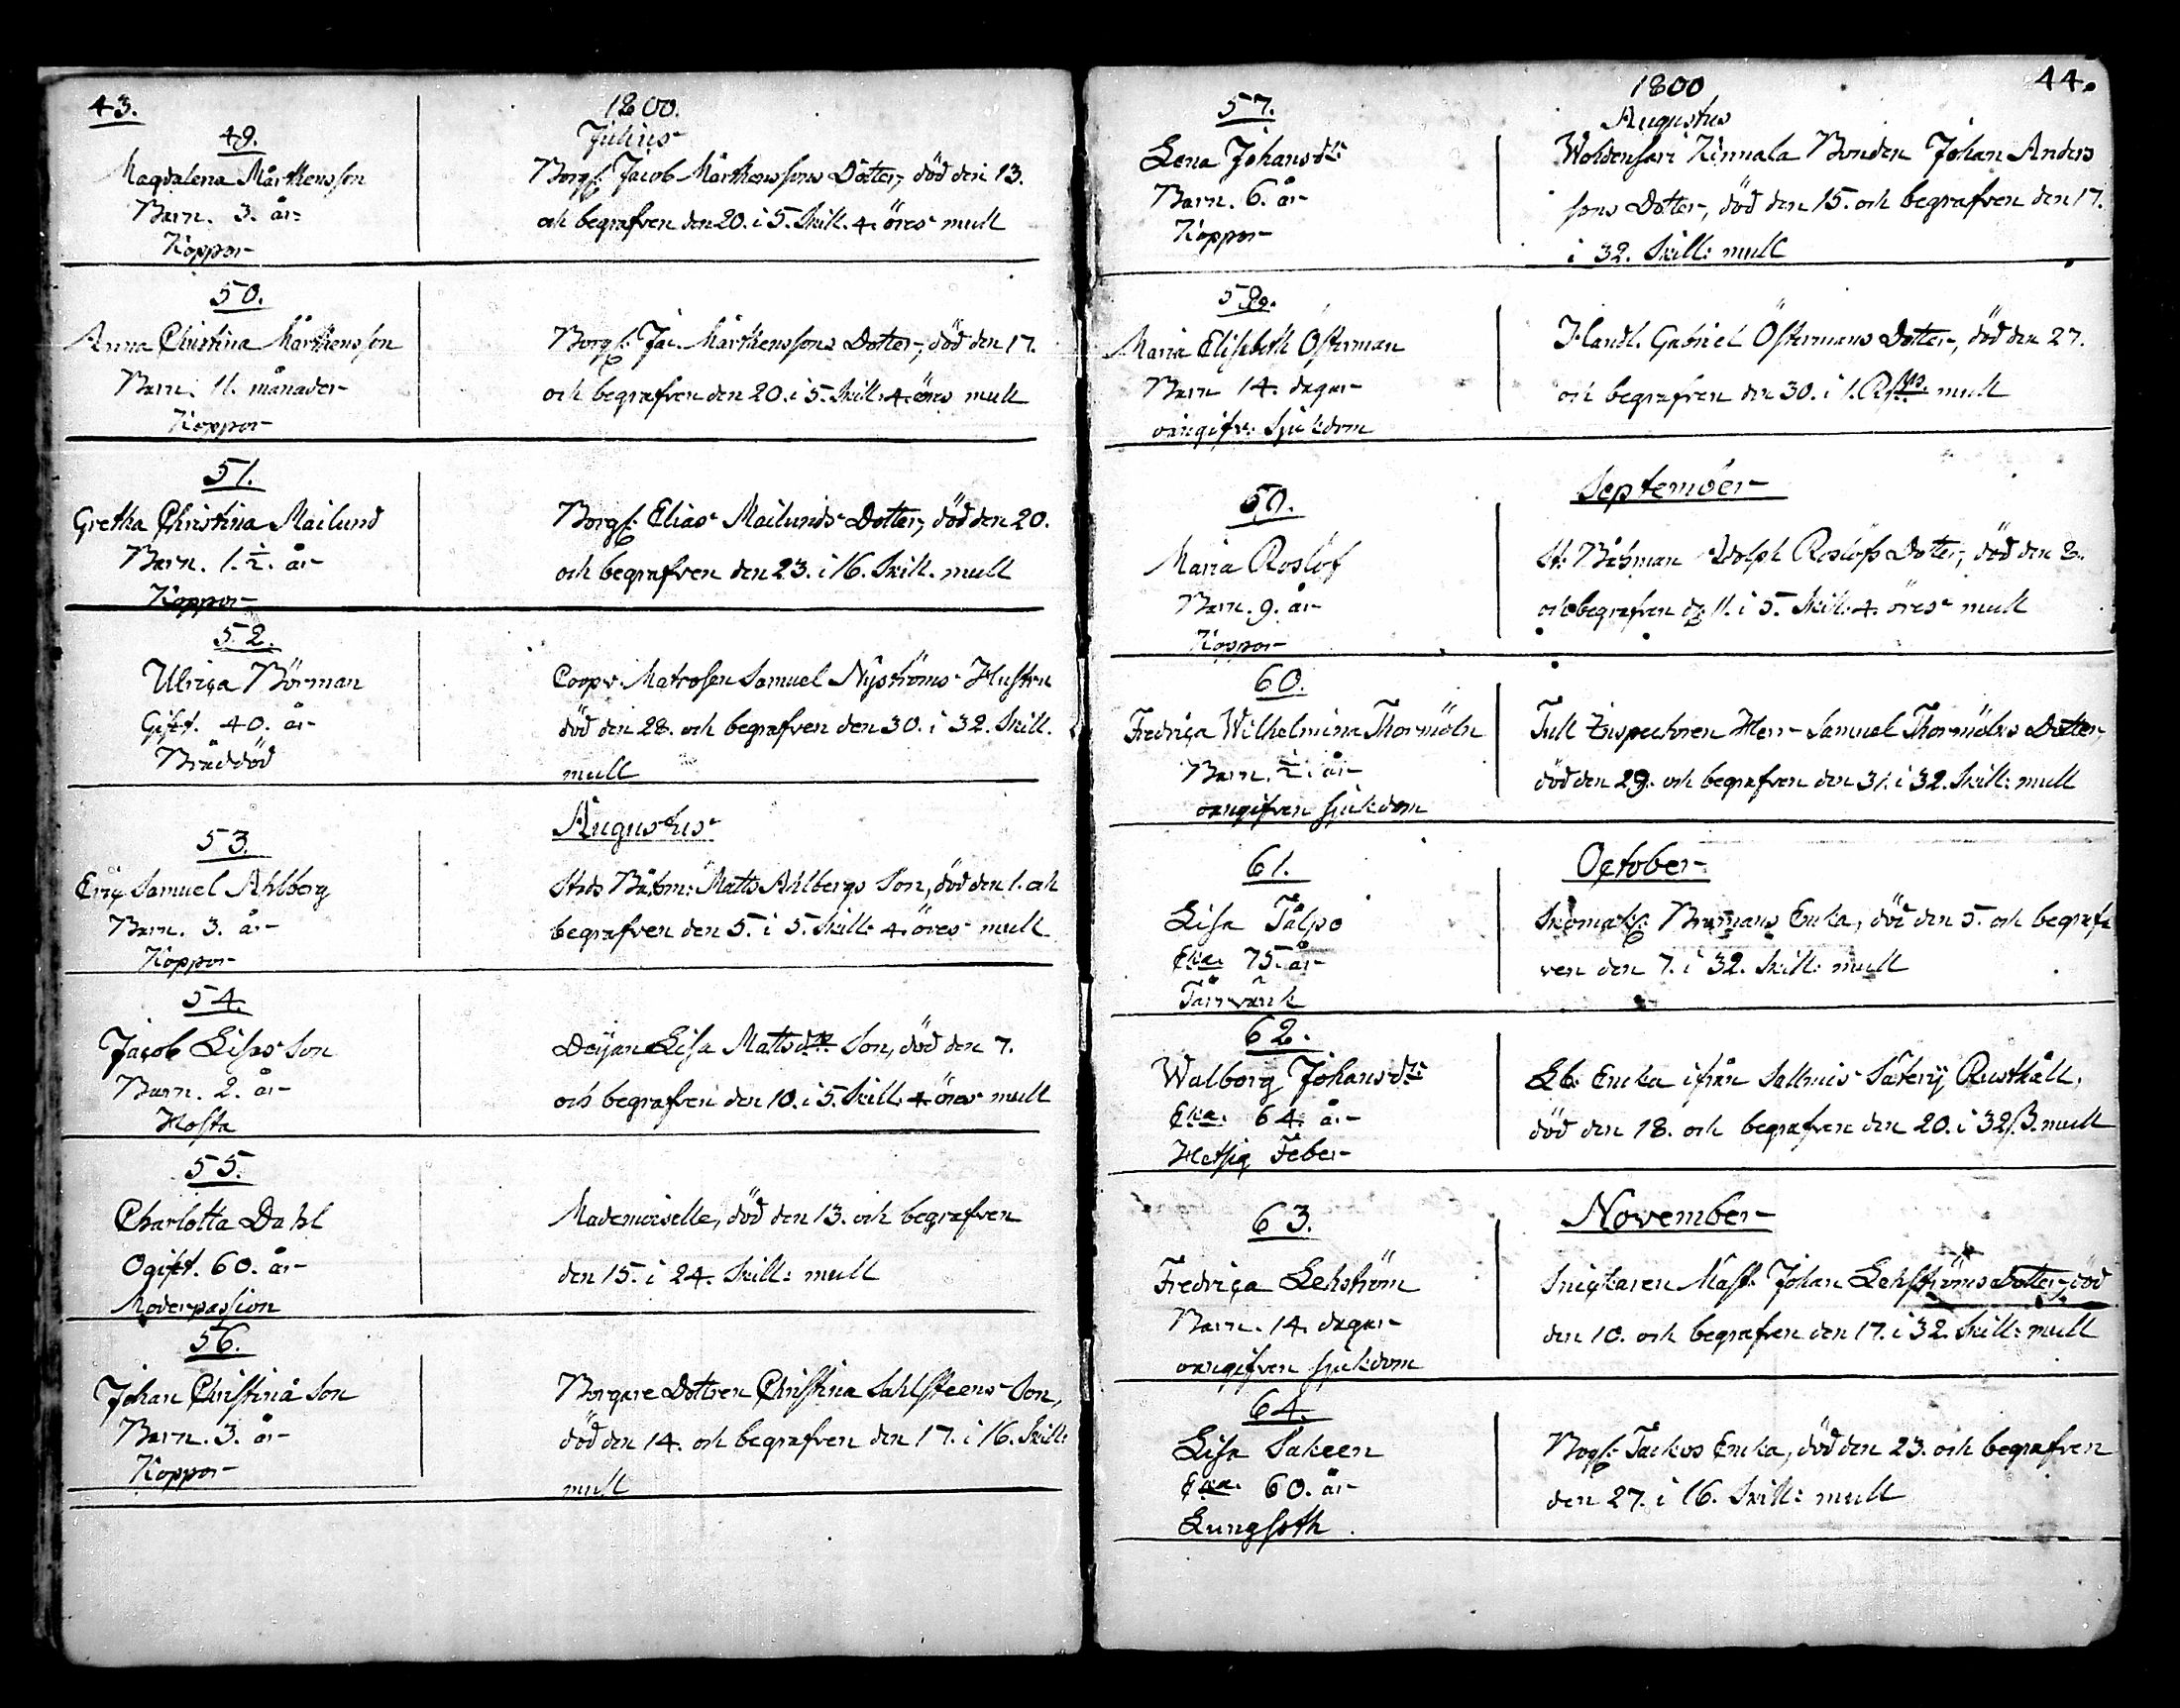 43.
1800.
Julius
49.
Magdalena Mårthensson
Barn. 3. år
Koppor
Borgs: Jacob Mårthenssons Dotter, död den 13.
och begrafven den 20. i 5. Skill. 4. öres mull
50.
Anna Christina Mårthensson
Barn. 11. månader
Koppor
Borgs: Jac. Mårthenssons Dotter, död den 17.
och begrafven den 20. i 5. Skill. 4. öres mull
51.
Gretha Christina Mailund
Barn. 1. ½. år
Koppor
Borgs: Elias Mailunds Dotter, död den 20.
och begrafven den 23. i 16. Skill. mull
52.
Ulrica Börman
Gift. 40. år
Bråddöd
Coopv. Matrosen Samuel Nyströms Hustru
död den 28. och begrafven den 30. i 32. Skill.
mull
Augustus
53.
Eric Samuel Ahlberg
Barn. 3. år
Koppor
Stads Båtsm: Matts Ahlbergs Son, död den 1. och
begrafven den 5. i 5. Skill: 4. öres mull
54.
Jacob Lisas Son
Barn. 2. år
Hosta
Deijan Lisa Matsdtr Son, död den 7.
och begrafven den 10. i 5. Skill. 4 öres mull
55.
Charlotta Dahl
Ogift. 60. år
Moderpassion
Mademoiselle, död den 13. och begrafven
den 15. i 24. Skill: mull
56.
Johan Christinä Son
Barn. 3. år
Koppor
Borgare Dottren Christina Sahlsteens Son,
död den 14. och begrafven den 17. i 16. Skill:
mull
44.
1800
Augustus
57.
Lena Johansdtr
Barn. 6. år
Koppor
Kinnala Bonden Johan Anders
sons Dotter, död den 15. och begrafven den 17.
i 32. Skill: mull
58.
Maria Elisabeth Österman
Barn 14. dagar
oangifv: Sjukdom
Handl. Gabriel Östermans Dotter, död den 27.
och begrafven den 30. i 1. mull
September
59.
Maria Roslöf
Barn. 9. år
Koppor
St: Båtsman Adolph Roslöfs Dotter, död den 8.
och begrafven d: 11. i 5. Skill: 4. öres mull
60.
Fredrica Wilhelmina Thormöln
Barn. ½. år
oangifven sjukdom
Tull Inspectoren Herr Samuel Thormölns Dotter,
död den 29. och begrafven den 31. i 32. Skill: mull
October
61.
Lisa Talpo
Eka. 75. år
Tärvärk
Skomaks: Bramans Enka, död den 5. och begraf
ven den 7. i 32. Skill: mull
62.
Walborg Johansdtr
Eka. 64. år
Hetsig Feber
Lb: Enka ifrån Sallmis Säterij Rusthåll,
död den 18. och begrafven den 20. i 32 ß. mull
November
63.
Fredrica Lehström
Barn. 14. dagar
oangifven sjukdom
Snickaren Mäst. Johan Lehströms Dotter, död
den 10. och begrafven den 17. i 32. Skill: mull
64.
Lisa Sakeen
Eka. 60. år
Lungsoth
Borgs: Tackos Enka, död den 23. och begrafven
den 27. i 16. Skill: mull